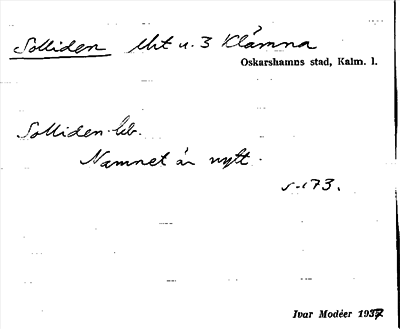 Solliden lht u. 3 Klämna
Oskarshamns stad, Kalm. l.
Solliden. leb.
Namnet är nytt.
s. 173.
Ivar Modéer 1937